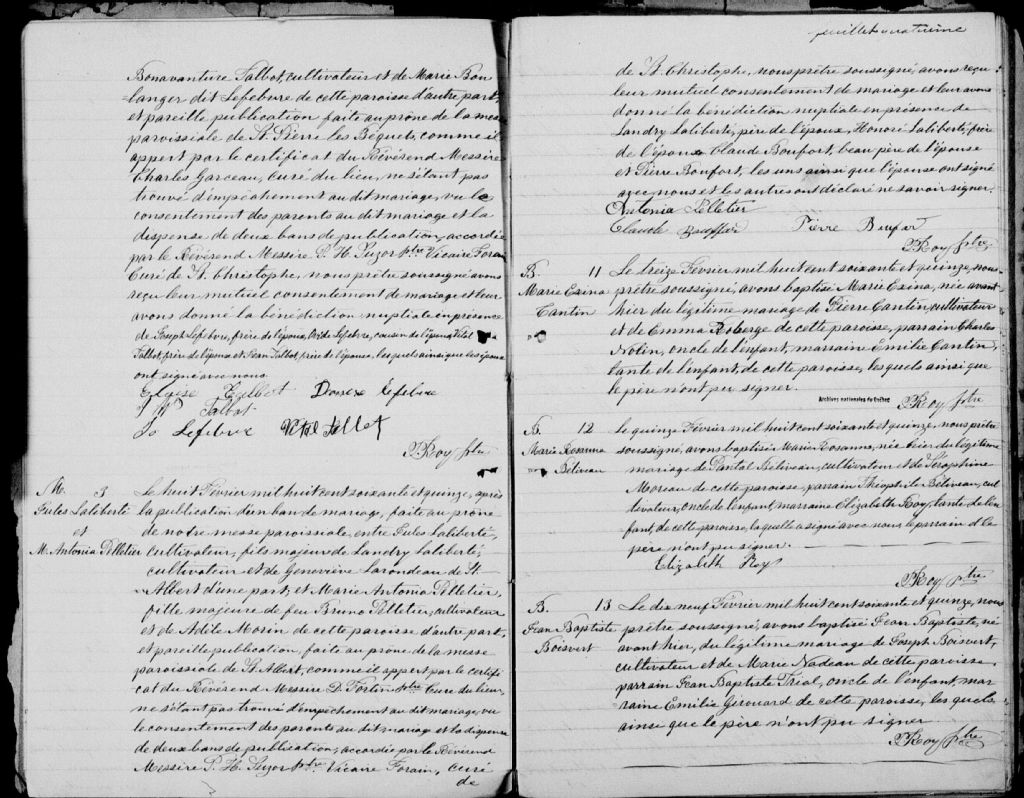 Bonavanture Talbot, cultivateur et de Marie Bou
langer dit Lefebvre de cette paroisse d'autre part,
et pareille publication faite au prône de la messe
paroissiale de St. Pierre les Béquets, comme il
appert par le certificat du Révérend Messire
Charles Garceau, curé du lieu, ne s'étant pas
trouvé d'empêchement au dit mariage, vu le
consentement des parents au dit mariage et la
dispense de deux bans de publication, accordée
par le Révérend Messire P. H. Suzor ptre Vicaire Forain
Curé de St. Christophe, nous prêtre soussigné avons
reçu leur mutuel consentement de mariage et leur
avons donné la bénédiction nuptiale en présence
de Joseph Lefebvre, frère de l'époux, Lefebvre, cousin de l'époux, Vital
Talbot, frère de l'épouse et Jean Talbot, frère de l'épouse, lesquels ainsi que les époux
ont signé avec nous.
Talbot Lefebvre
Talbot
Jo Lefebvre Vital Talbot
Roy ptre
M. 3
Jules Laliberté
et
M. Antonia Pelletier
Le huit Février mil huit cent soixante et quinze, après
la publication d'un ban de mariage, faite au prône
de notre messe paroissiale, entre Jules Laliberté,
cultivateur, fils majeur de Landry Laliberté,
cultivateur et de Geneviève Larondeau de St.
Albert d'une part, et Marie Antonia Pelletier,
fille majeure de feu Bruno Pelletier, cultivateur
et de Adèle Morin de cette paroisse d'autre part,
et pareille publication faite au prône de la messe
paroissiale de St. Albert, comme il appert par le certifi
cat du Révérend Messire D. Fortin ptre Curé du lieu,
ne s'étant pas trouvé d'empêchement au dit mariage, vu
le consentement des parents au dit mariage et la dispense
de deux bans de publication, accordée par le Révérend
Messire P. H. Suzor ptre. Vicaire Forain, curé
de
feuillet quatrième
de St. Christophe, nous prêtre soussigné, avons reçu
leur mutuel consentement de mariage et leur avons
donné la bénédiction nuptiale en présence de
Landry Laliberté, père de l'époux, Honoré Laliberté, frère
de l'époux, Claude Boufort, beau père de l'épouse
et Pierre Boufort, les uns ainsi que l'épouse ont signé
avec nous et les autres ont déclaré ne savoir signer.
Antonia Pelletier
Claude Pierre
Roy ptre
B. 11
Marie Exina
Cantin
Le treize Février mil huit cent soixante et quinze, nous
prêtre soussigné, avons baptisé Marie Exina, née avant
hier du légitime mariage de Pierre Cantin, cultivateur
et de Emma Roberge de cette paroisse, parrain Charles
Nolin, oncle de l'enfant, marraine Emilie Cantin,
tante de l'enfant, de cette paroisse, lesquels ainsi que
le père n'ont pu signer.
Archives nationales du Québec
Roy ptre
B. 12
Marie Rosanna
Béliveau
Le quinze Février mil huit cent soixante et quinze, nous prêtre
soussigné, avons baptisé Marie Rosanna, née hier du légitime
mariage de Béliveau, cultivateur et de Séraphine
Moreau de cette paroisse, parrain Théophile Béliveau, cul
tivateur, oncle de l'enfant, marraine Elizabeth Roy, tante de l'en
fant, de cette paroisse, laquelle a signé avec nous, le parrain et le
père n'ont pu signer.
Elizabeth Roy
Roy ptre
B. 13
Jean Baptiste
Boisvert
Le dix neuf Février mil huit cent soixante et quinze, nous
prêtre soussigné, avons baptisé Jean Baptiste, né
avant hier, du légitime mariage de Joseph Boisvert,
cultivateur et de Marie Nadeau de cette paroisse,
parrain Jean Baptiste Trial, oncle de l'enfant, mar
raine Emilie Girouard de cette paroisse, lesquels
ainsi que le père n'ont pu signer
Roy ptre